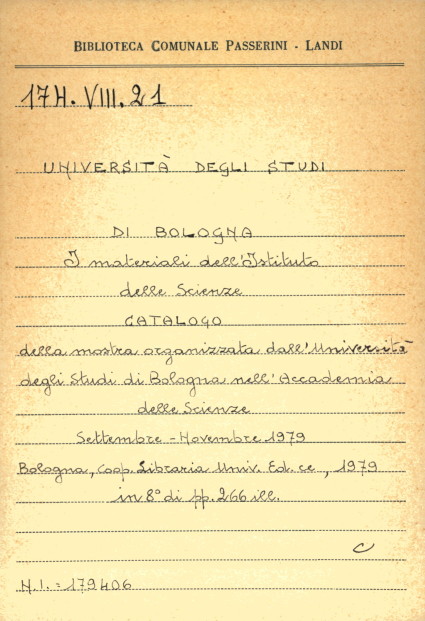 BIBLIOTECA COMUNALE PASSERINI - LANDI
17H. VIII. 21
UNIVERSITÀ DEGLI STUDI
DI BOLOGNA
I materiali dell'Istituto
delle Scienze
CATALOGO
della mostra organizzata dall'Università
degli Studi di Bologna nell'Accademia
delle Scienze
Settembre - Novembre 1979
Bologna, Coop. Libraria Univ. Ed. ce, 1979
in 8° di pp. 266 ill.
C
N.I. = 179406